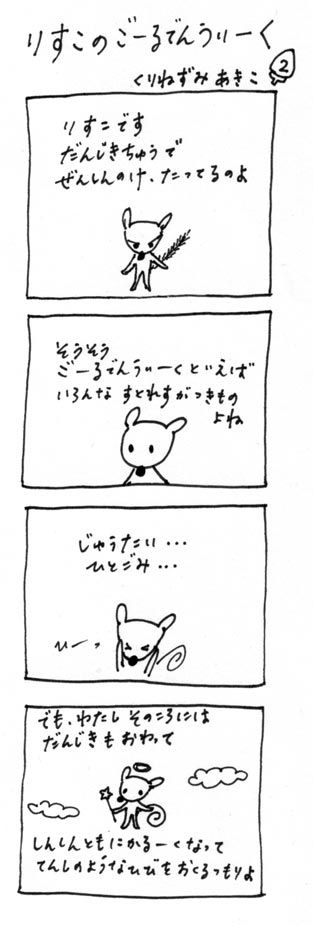 りすこのごーるでんうぃーく
②
くりねずみ あきこ
りすこです
だんじきちゅうで
ぜんしんのけ、たってるのよ
そうそう
ごーるでんうぃーくといえば
いろんな すとれすがつきもの
よね
じゅうたい・・・
ひとごみ・・・
ひーっ
でも、わたし そのころには
だんじきもおわって
しんしんともにかるーくなって
てんしのようなひびをおくるつもりよ